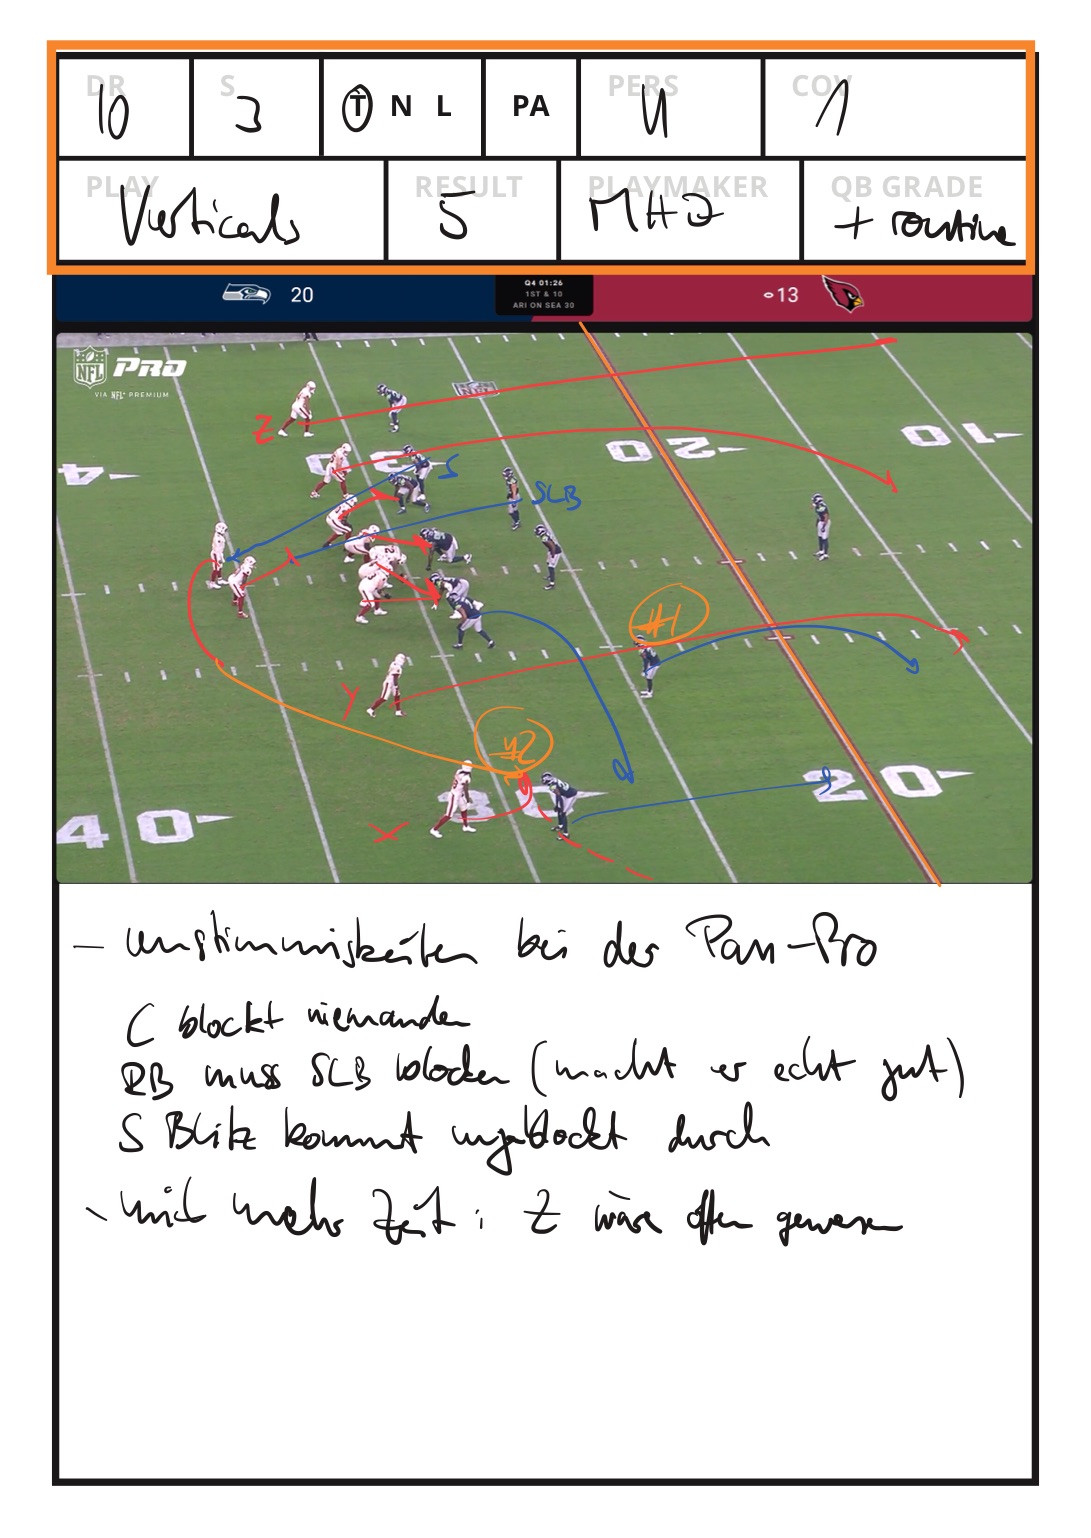 DR 10
S 3
T N L
PA
PERS 11
COV 1
PLAY Verticals
RESULT 5
PLAYMAKER MHJ
QB GRADE + routine
20
Q4 01:26
1ST & 10
ARI ON SEA 30
13
NFL PRO
VIA NFL+ PREMIUM
Z
S
SLB
#1
Y
#2
X
4
3 0
2 0
1 0
4 0
3 0
2 0
- Unstimmigkeiten bei der Pass-Pro
C blockt niemanden
RB muss SLB blocken (macht er echt gut)
S Blitz kommt ungeblockt durch
- mit mehr Zeit: Z wäre offen gewesen